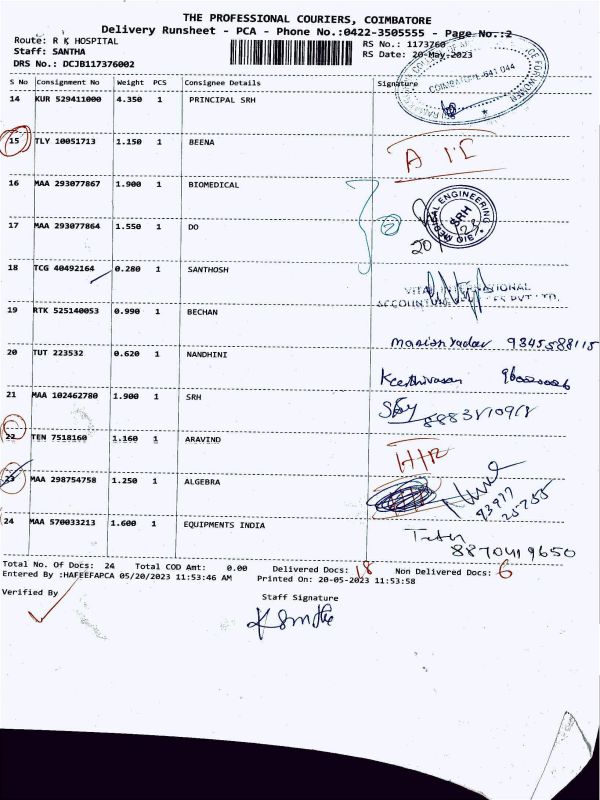 THE PROFESSIONAL COURIERS, COIMBATORE
Delivery Runsheet - PCA - Phone No.:0422-3505555 - Page No.:2
Route: R K HOSPITAL
RS No.: 1173760
Staff: SANTHA
RS Date: 20-May-2023
DRS No.: DCJB117376002
S No Consignment No Weight PCS Consignee Details Signature
COIMBATORE-641 044
14 KUR 529411000 4.350 1 PRINCIPAL SRH
15 TLY 10051713 1.150 1 BEENA
16 MAA 293077867 1.900 1 BIOMEDICAL
BIO MEDICAL ENGINEERING
SRH
17 MAA 293077864 1.550 1 DO
18 TCG 40492164 0.280 1 SANTHOSH
19 RTK 525140053 0.990 1 BECHAN
Manish yadav 9345588115
20 TUT 223532 0.620 1 NANDHINI
Keerthivasan
21 MAA 102462780 1.900 1 SRH
22 TEN 7518160 1.160 1 ARAVIND
23 MAA 298754758 1.250 1 ALGEBRA
24 MAA 570033213 1.600 1 EQUIPMENTS INDIA
Total No. Of Docs: 24 Total COD Amt: 0.00 Delivered Docs: 18 Non Delivered Docs: 6
Entered By :HAFEEFAPCA 05/20/2023 11:53:46 AM Printed On: 20-05-2023 11:53:58
Verified By
Staff Signature